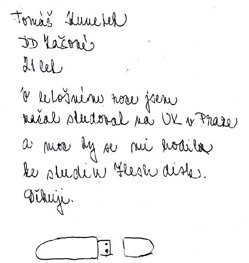 Tomáš Kuneteh
DD Žačoné
21 let
V letošním roce jsem
začal studovat na UK v Praze
a moc by se mi hodila
ke studiu Flesh disk.
Děkuji.